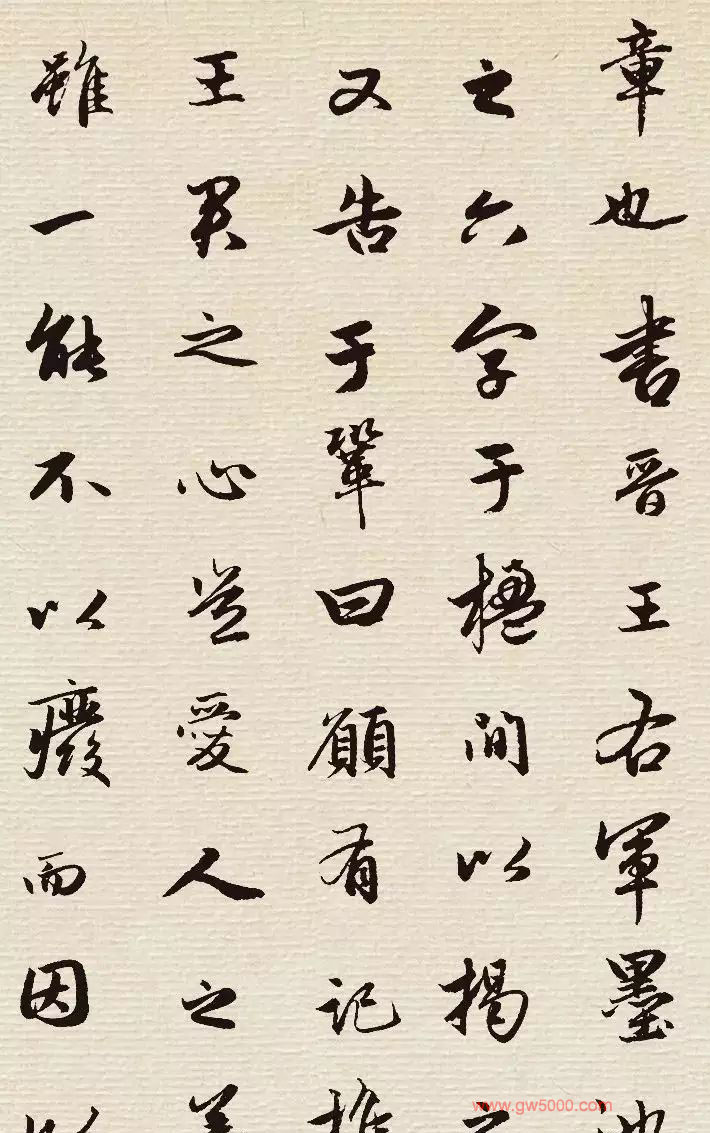 章也书晋王右军墨池
之六字于楹间以揭之
又告于鞏曰願有记推
王君之心岂愛人之善
雖一能不以癈而因以
www.gw5000.com